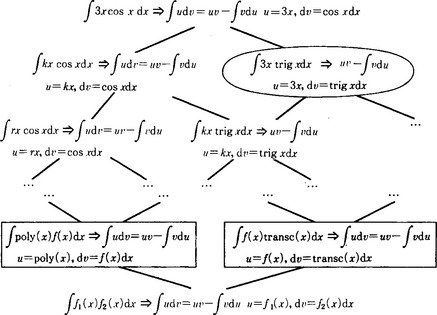 ∫3xcos x dx ⇒ ∫udv = uv − ∫vdu u=3x, dv=cos xdx
∫kx cos xdx ⇒ ∫udv = uv − ∫vdu
u=kx, dv=cos xdx
∫3x trig xdx ⇒ uv − ∫vdu
u=3x, dv=trig xdx
∫rx cos xdx ⇒ ∫udv = uv − ∫vdu
u=rx, dv=cos xdx
∫kx trig xdx ⇒ uv − ∫vdu
u=kx, dv=trig xdx
...
... ... ... ... ... ...
∫poly(x)f(x)dx ⇒ ∫udv = uv − ∫vdu
u=poly(x), dv=f(x)dx
∫f(x)transc(x)dx ⇒ ∫udv = uv − ∫vdu
u=f(x), dv=transc(x)dx
∫f₁(x)f₂(x)dx ⇒ ∫udv = uv − ∫vdu u=f₁(x), dv=f₂(x)dx